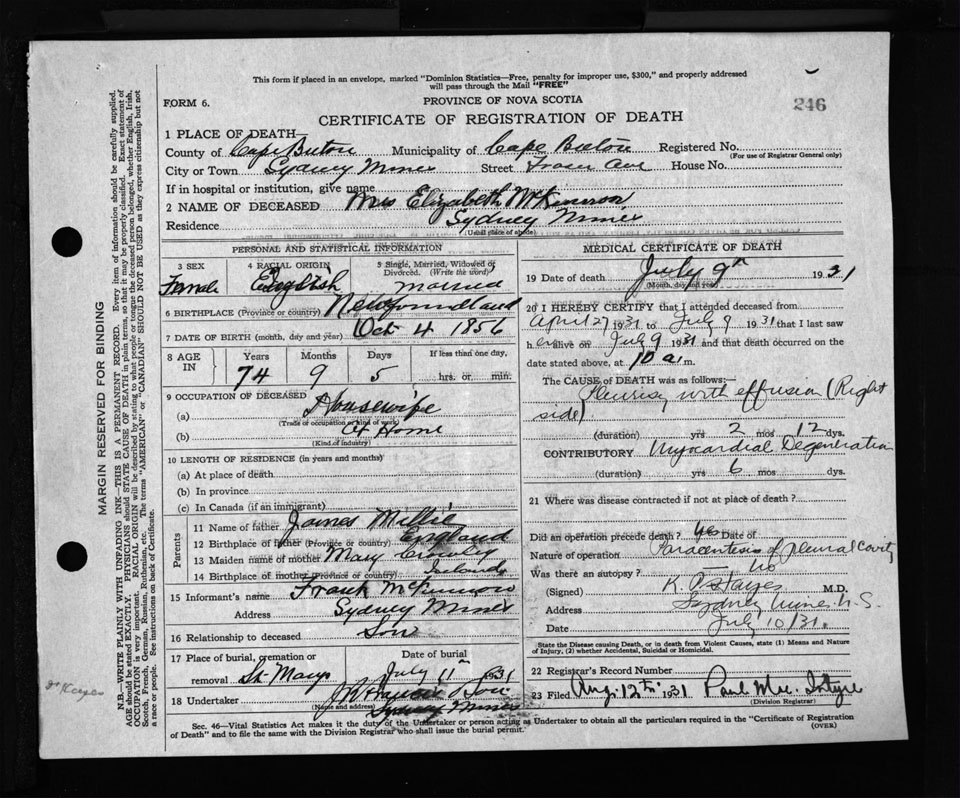 This form if placed in an envelope, marked "Dominion Statistics—Free, penalty for improper use, $300," and properly addressed
will pass through the Mail "FREE"
FORM 6.
PROVINCE OF NOVA SCOTIA
246
CERTIFICATE OF REGISTRATION OF DEATH
1 PLACE OF DEATH—
County of Cape Breton Municipality of Cape Breton Registered No.
(For use of Registrar General only)
City or Town Sydney Mines Street Tram Ave House No.
If in hospital or institution, give name
2 NAME OF DECEASED Mrs Elizabeth McKinnon
Residence Sydney Mines
(Usual place of abode)
PERSONAL AND STATISTICAL INFORMATION
3 SEX 4 RACIAL ORIGIN 5 Single, Married, Widowed or
Divorced. (Write the word)
Female English Married
6 BIRTHPLACE (Province or country) Newfoundland
7 DATE OF BIRTH (month, day and year) Oct 4 1856
8 AGE IN Years Months Days If less than one day,
74 9 5 hrs. or min.
9 OCCUPATION OF DECEASED
(a) Housewife
(Trade or occupation or kind of work)
(b) At Home
(Kind of industry)
10 LENGTH OF RESIDENCE (in years and months)
(a) At place of death
(b) In province
(c) In Canada (if an immigrant)
Parents
11 Name of father James Millie
12 Birthplace of father (Province or country) England
13 Maiden name of mother Mary Crowley
14 Birthplace of mother (Province or country) Ireland
15 Informant's name Frank McKinnon
Address Sydney Mines
16 Relationship to deceased Son
17 Place of burial, cremation or Date of burial
removal St. Marys July 11th 1931
18 Undertaker Francis & Son
(Name and address) Sydney Mines
MEDICAL CERTIFICATE OF DEATH
19 Date of death July 9th 1931
(Month, day and year)
20 I HEREBY CERTIFY that I attended deceased from
April 27 1931 to July 9 1931 that I last saw
her alive on July 9 1931 and that death occurred on the
date stated above, at 10 a.m.
The CAUSE OF DEATH was as follows:—
Pleurisy with effusion (Right
side)
(duration) yrs 2 mos 12 dys.
CONTRIBUTORY Myocardial Degeneration
(duration) yrs 6 mos dys.
21 Where was disease contracted if not at place of death?
Did an operation precede death? yes Date of
Nature of operation Paracentesis of pleural cavity
Was there an autopsy? no
(Signed) K. M.D.
Address Sydney Mines N.S.
Date July 10/31.
State the Disease causing Death, or in death from Violent Causes, state (1) Means and Nature
of Injury, (2) whether Accidental, Suicidal or Homicidal.
22 Registrar's Record Number
23 Filed Aug. 12th 1931 Paul Mc. Intyre
(Division Registrar)
Sec. 46—Vital Statistics Act makes it the duty of the Undertaker or person acting as Undertaker to obtain all the particulars required in the "Certificate of Registration
of Death" and to file the same with the Division Registrar who shall issue the burial permit.
(OVER)
MARGIN RESERVED FOR BINDING
N.B.—WRITE PLAINLY WITH UNFADING INK—THIS IS A PERMANENT RECORD. Every item of information should be carefully supplied.
AGE should be stated EXACTLY. PHYSICIANS should STATE CAUSE OF DEATH in plain terms, so that it may be properly classified. Exact statement of
OCCUPATION is very important. RACIAL ORIGIN will be described by stating to what people or tongue the deceased person belonged, whether English, Irish,
Scotch, French, German, Russian, Ruthenian, etc. The terms "AMERICAN" or "CANADIAN" SHOULD NOT BE USED as they express citizenship but not
a race or people. See instructions on back of Certificate.